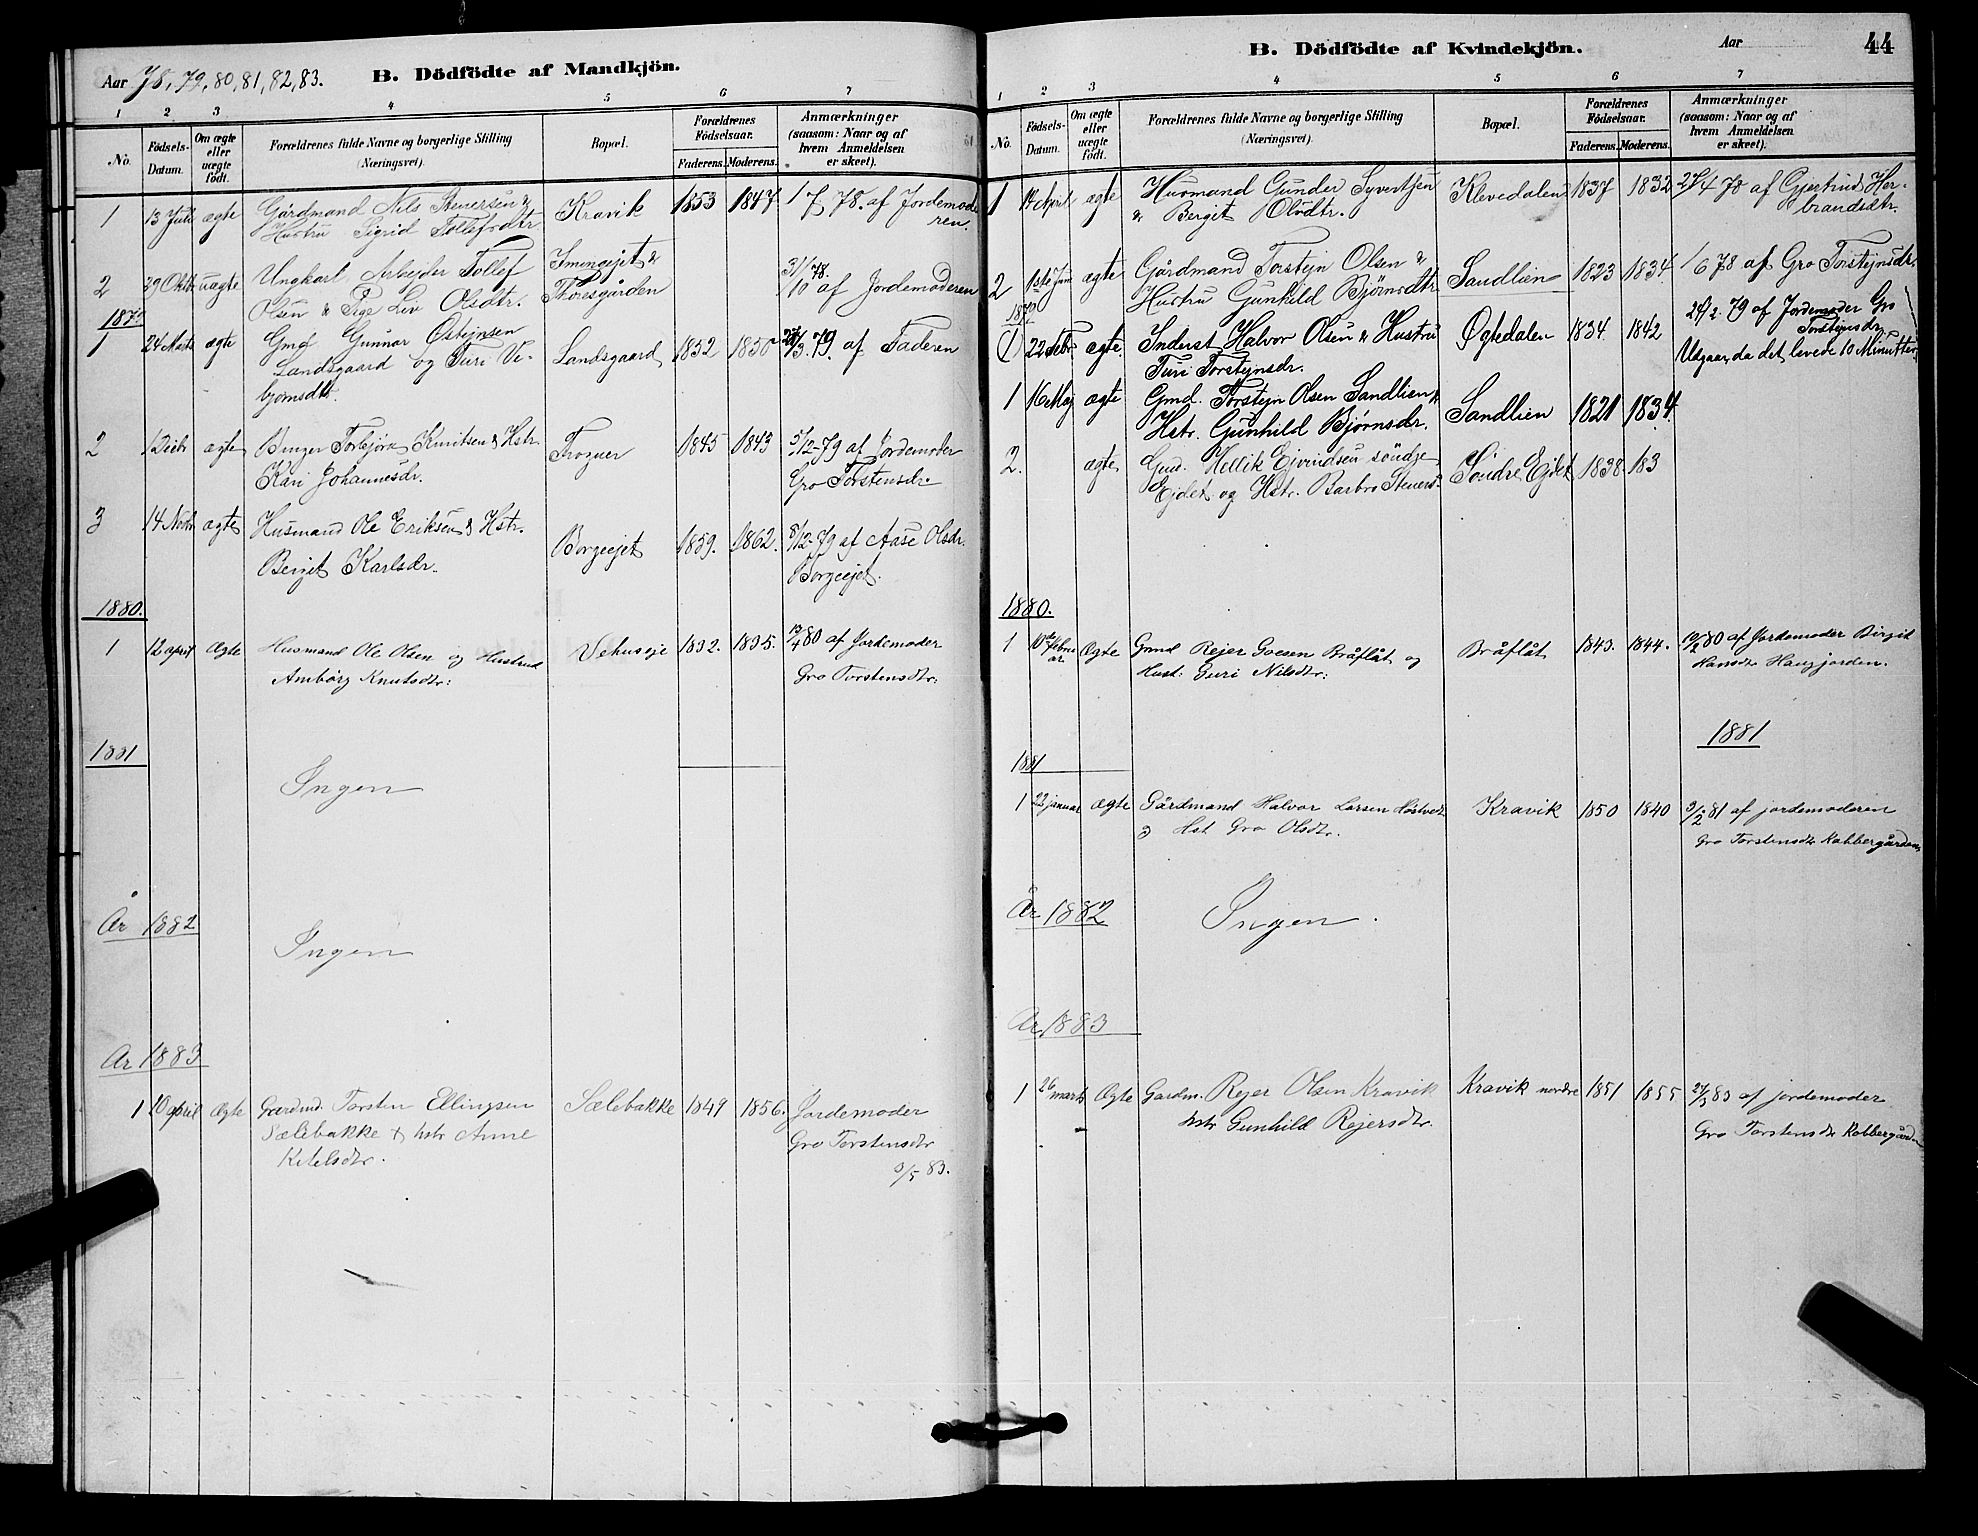 Aar 78, 79, 80, 81, 82, 83. B. Dödfödte af Mandkjön.
1 2 3 4 5 6 7
No. Födsels-Datum. Om ægte eller uægte født. Forældrenes fulde Navne og borgerlige Stilling (Næringsvei). Bopæl. Forældrenes Födselsaar. Faderens. Moderens. Anmærkninger (saasom: Naar og af hvem Anmeldelsen er skeet).
1 13 Juli ægte Gårdmand Nils Steversen & Kravik 1853 1847 1/7 78. af Jordemode
Hustru Sigrid Tollefsdtr ren.
2 29 Oktb uægte Ungkarl Arbejder Tollef Imingejet & 31/10 78.
Olsen & Pige Liv Olsdtr. Thoresgården af Jordemoderen
1879
1 24 Marts ægte Gmd Gunnar Østejnsen Landsgaard 1852 1850 79. af Faderen
Landsgaard og Turi Ve-
bjørnsdtr.
2 1 Decb ægte Torbjørn Knutsen & Hstr. Frogner 1845 1843 5/12-79 af Jordemoder
Kari Johannesdr. Gro Torstensdr.
3 14 Novb ægte Husmand Ole Eriksen & Hstr. Borgeejet 1859. 1862. 8/12-79 af Aase Olsdr.
Beirit Karlsdr. Borgeejet.
1880.
1 12 april Ægte Husmand Ole Olsen og Hustrud Vehuseje 1832. 1835. 80 af Jordemoder
Ambörg Knutsdtr: Gro Torstensdtr:
1881
Ingen
År 1882
Ingen
Ar 1883
1 20 april Ægte Gaardmd. Torsten Ellingsen Sælebakke 1849 1856. Jordemoder
Sælebakke & hstr Anne Gro Torstensdtr
Ketelsdtr. 3/5 83.
B. Dödfödte af Kvindekjön. Aar 44
1 2 3 4 5 6 7
No. Födsels-Datum. Om ægte eller uægte födt. Forældrenes fulde Navne og borgerlige Stilling (Næringsvei). Bopæl. Forældrenes Födselsaar. Faderens. Moderens. Anmærkninger (saasom: Naar og af hvem Anmeldelsen er skeet).
1 14 April ægte Husmand Gunder Syvertsen Klevedalen 1837 1832 27/4 78 af Gjertrud Her-
& Bergit Olsdtr. brandsdtr.
2 1ste Juni ægte Gårdmand Torstejn Olsen & Sandlien 1823 1834 1/6 78 af Gro Torstejnsdr.
Hustru Gunhild Bjørnsdtr
1879 24/2-79 af Jordemoder Gro
Torstejnsdr.
(1) 22 Febr ægte. Inderst Halvor Olsen & Hustru Øgtedalen 1834. 1842 Udgaar, da det levede 10 Minutter
Turi Torstejnsdr.
1 16 Maj ægte Gmd. Torstejn Olsen Sandlien & Sandlien 1821 1834.
Hstr. Gunhild Bjørnsdr.
2. ægte Gmd. Hellik Ejvindsen söndre Söndre Ejdet 1838 183
Ejdet og Hstr. Barbro Steversd.
1880.
1 10de februar Ægte Grmd Rejer Svesen Bråflåt og Bråflåt 1843. 1844. 80 af Jordemoder Birgit
Hust: Guri Nilsdtr: Hansdtr Haugjorden.
1881
1881
1 22 januar Ægte Gårdmand Halvor Larsen Hostvedt Kravik 1850 1840 9/2 81 af jordemoderen
& Hst Gro Olsdtr. Gro Torstensdtr Kobbergården
År 1882
Ingen.
Ar 1883
1 26 marts Ægte Gardm. Rejer Olsen Kravik Kravik nordre 1851 1855 27/3 83 af jordemoder
hstr Gunhild Rejersdtr. Gro Torstensdtr Kobbergården